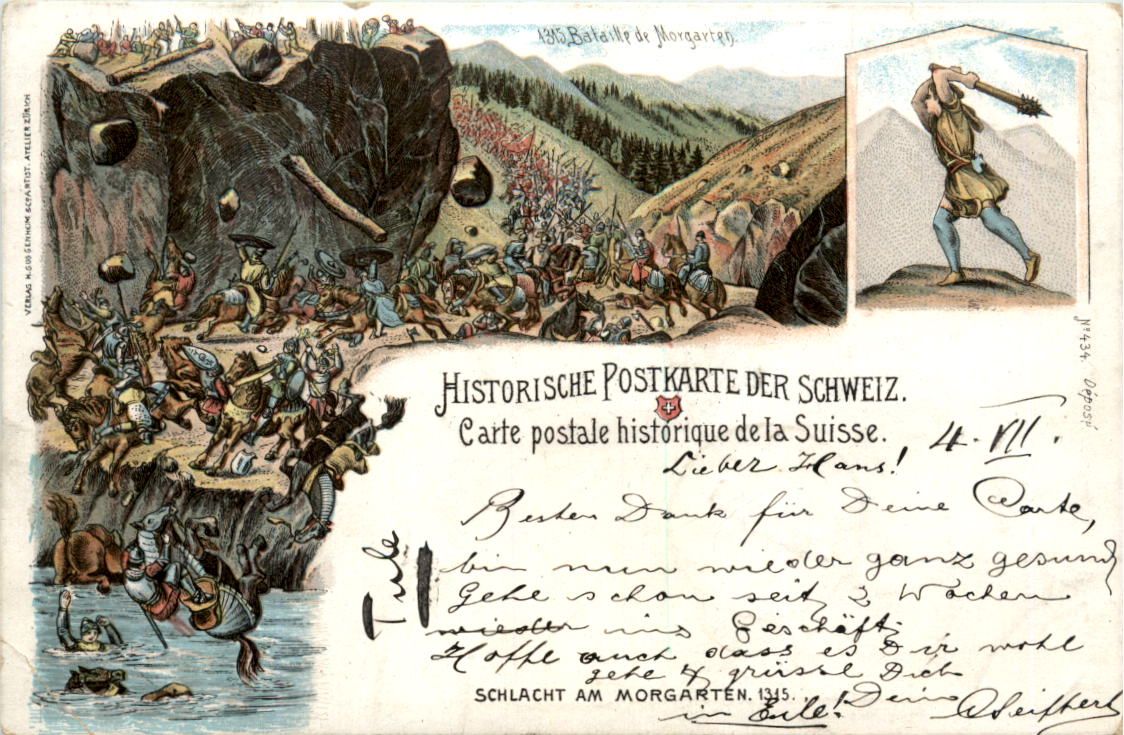 1315. Bataille de Morgarten.
VERLAG R. GUGGENHEIM & Co ARTIST. ATELIER ZÜRICH
No 434 Déposé
HISTORISCHE POSTKARTE DER SCHWEIZ.
Carte postale historique de la Suisse.
4. VII.
Lieber Hans!
Besten Dank für Deine Carte,
bin nun wieder ganz gesund
Gehe schon seit 3 Wochen
wieder ins Geschäft.
Hoffe auch dass es Dir wohl
gehe & grüsse Dich
SCHLACHT AM MORGARTEN. 1315.
in Eile! Dein ASeiffert